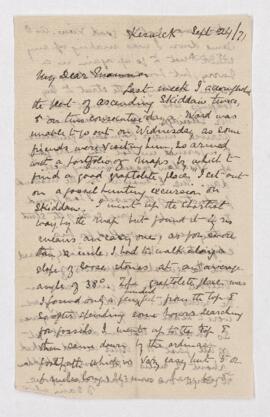 Keswick Sept 24/71
My Dear Mamma
Last week I accomplished
the feat of ascending Skiddaw twice,
& on two consecutive days. Ward was
unable to go out on Wednesday as some
friends were visiting him, so armed
with a portfolio of maps, by which to
find a good graptolite place, I set out
on a fossil hunting excursion on
Skiddaw. I went up the shortest
way by the map but found it by no
means an easy one, as for more
than a mile I had to walk along
slope of loose stones at an average
angle of 38°. The graptolite place was
I found only a from the top &
so after spending some hours searching
for fossils I went up to the top &
then came down by the ordinary
footpath which is very easy but 5 or
miles longer